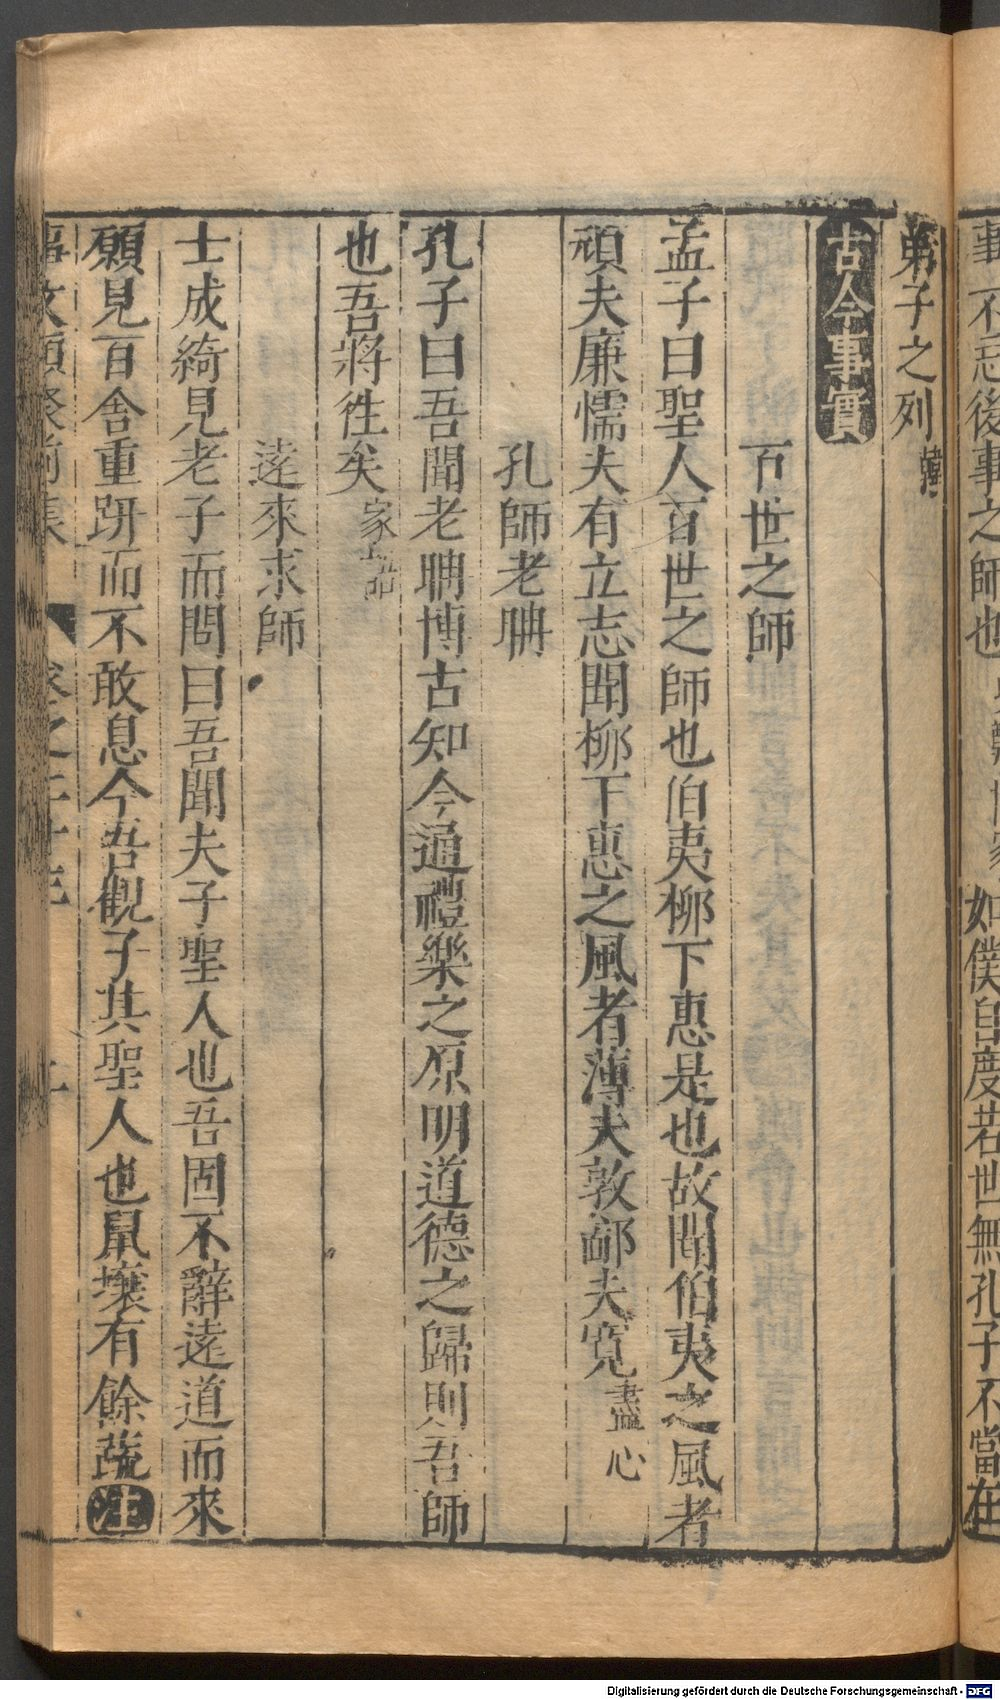 事不忘後事之師也
如僕自度若世無孔子不當在
弟子之列 韓
古今事實
百世之師
孟子曰聖人百世之師也伯夷柳下惠是也故聞伯夷之風者
頑夫廉懦夫有立志聞柳下惠之風者薄夫敦鄙夫寬 盡心
孔師老聃
孔子曰吾聞老聃博古知今通禮樂之原明道德之歸則吾師
也吾將徃矣 家語
遠來求師
士成綺見老子而問曰吾聞夫子聖人也吾固不辭遠道而來
願見百舍重趼而不敢息今吾觀子其聖人也鼠壤有餘蔬 注
事文類聚前集
Digitalisierung gefördert durch die Deutsche Forschungsgemeinschaft - DFG